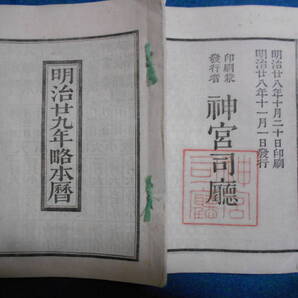 明治廿九年略本暦
明治廿八年十月二十日印刷
明治廿八年十一月一日發行
印刷兼
發行者
神宮司廳